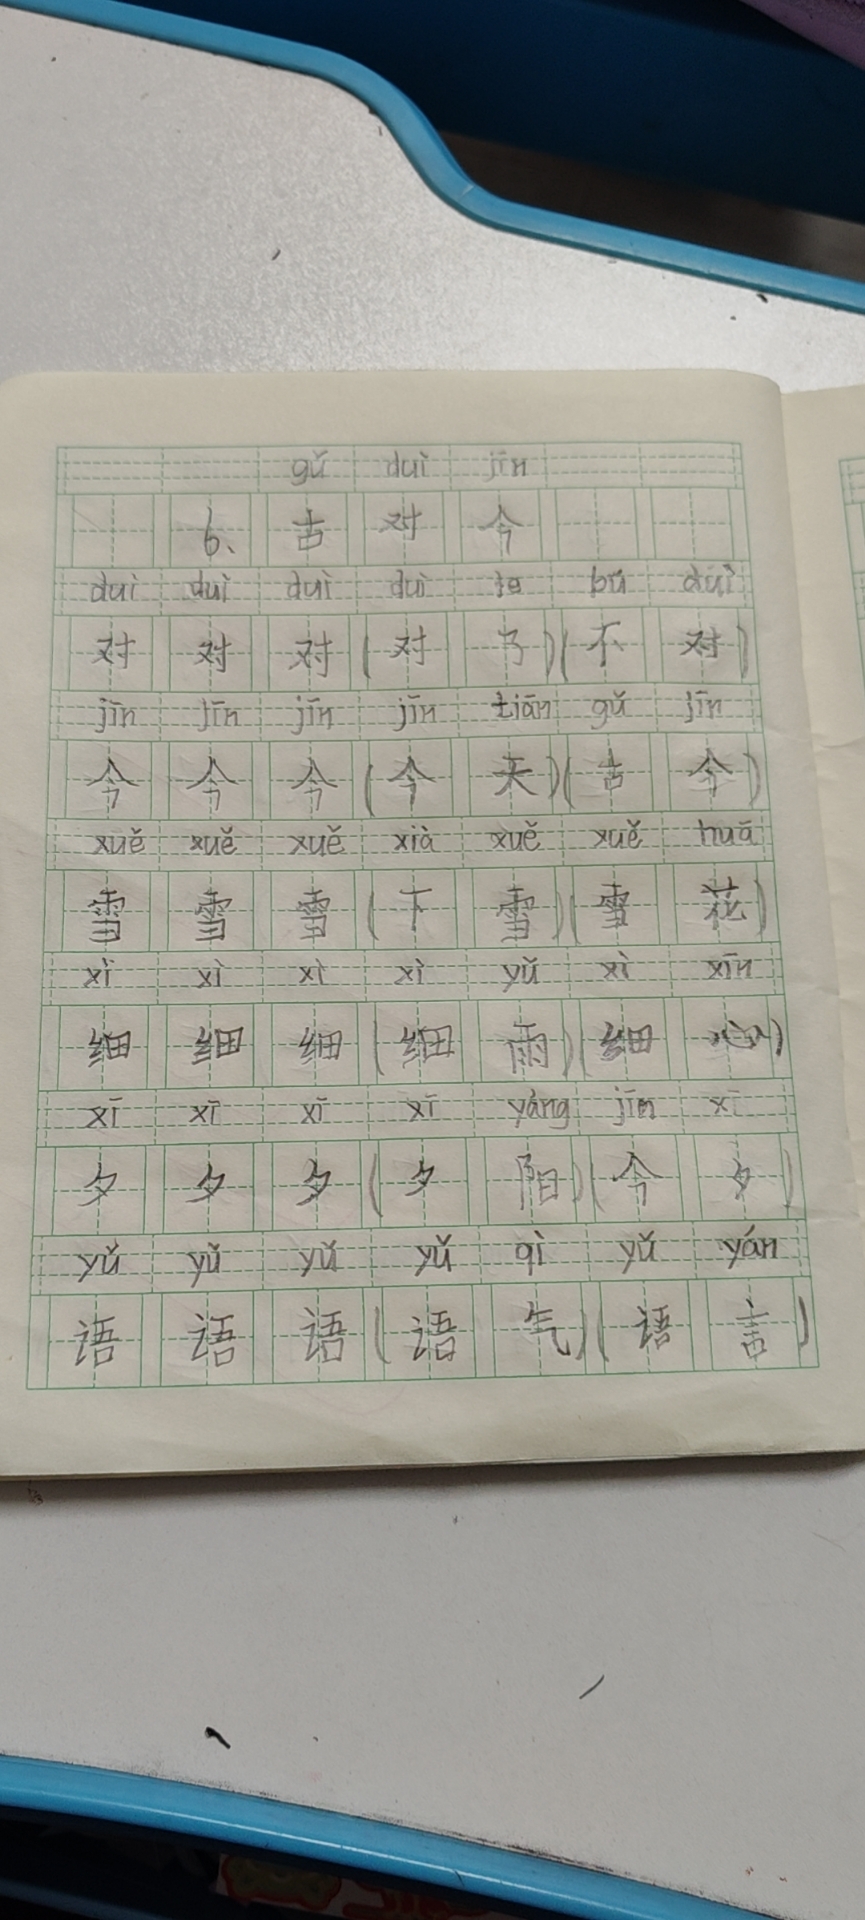 gǔ duì jīn
6、古对今
duì duì duì duì le bú duì
对对对(对了)(不对)
jīn jīn jīn jīn tiān gǔ jīn
今今今(今天)(古今)
xuě xuě xuě xià xuě xuě huā
雪雪雪(下雪)(雪花)
xì xì xì xì yǔ xì xīn
细细细(细雨)(细心)
xī xī xī xī yáng jīn xī
夕夕夕(夕阳)(今夕)
yǔ yǔ yǔ yǔ qì yǔ yán
语语语(语气)(语言)